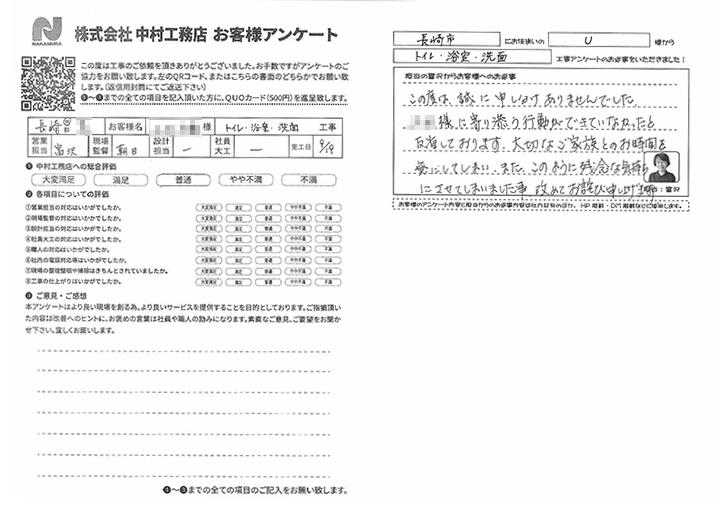 NAKAMURA
株式会社 中村工務店 お客様アンケート
この度は工事のご依頼を頂きありがとうございました。お手数ですがアンケートのご
協力をお願い致します。左のQRコード、またはこちらの書面のどちらかでお願い致
します。(返信用封筒にてご返送下さい)
❶〜❸までの全ての項目を記入頂いた方に、QUOカード(500円)を進呈致します。
長崎 市 お客様名 様 トイレ・浴室・洗面 工事
営業担当 富沢 現場監督 朝日 設計担当 ー 社員大工 ー 完工日 8/19
❶ 中村工務店への総合評価
大変満足 満足 普通 やや不満 不満
❷ 各項目についての評価
①営業担当の対応はいかがでしたか。 大変満足 満足 普通 やや不満 不満
②現場監督の対応はいかがでしたか。 大変満足 満足 普通 やや不満 不満
③設計担当の対応はいかがでしたか。 大変満足 満足 普通 やや不満 不満
④社員大工の対応はいかがでしたか。 大変満足 満足 普通 やや不満 不満
⑤職人の対応はいかがでしたか。 大変満足 満足 普通 やや不満 不満
⑥社内の電話対応等はいかがでしたか。 大変満足 満足 普通 やや不満 不満
⑦現場の整理整頓や掃除はきちんとされていましたか。 大変満足 満足 普通 やや不満 不満
⑧工事の仕上がりはいかがでしたか。 大変満足 満足 普通 やや不満 不満
❸ ご意見・ご感想
本アンケートはより良い現場を創る為、より良いサービスを提供することを目的としております。ご指摘頂い
た内容は改善へのヒントに、お褒めの言葉は社員や職人の励みになります。素直なご意見、ご要望をお聞か
せ下さい。宜しくお願いします。
❶〜❸までの全ての項目のご記入をお願い致します。
長崎市 にお住まいの U 様から
トイレ・浴室・洗面 工事アンケートのお返事をいただきました!
担当の富沢からお客様へのお返事
この度は、誠に申し分けありませんでした。
様に寄り添う行動ができていなかったと
反省しております。大切なご家族とのお時間を
無にしてしまい、また、このように残念な気持ち
にさせてしまいました事 改めてお詫び申し上げます
:富沢
お客様のアンケート内容と担当からのお返事内容は社内共有のほか、HP掲載・DM掲載などに使用します。